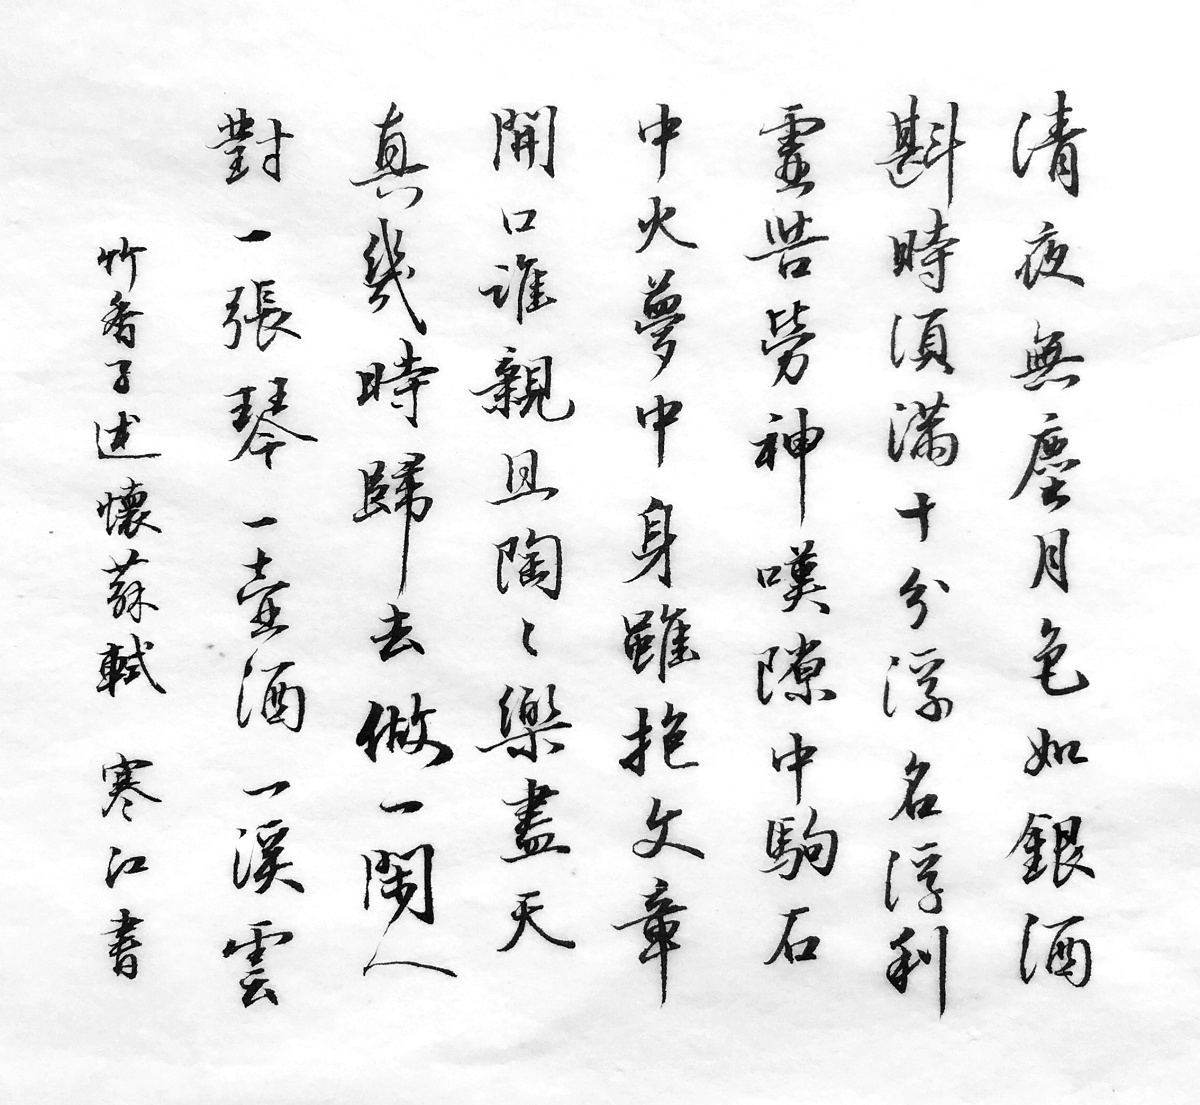 清夜無塵月色如銀酒
斟時須滿十分浮名浮利
虛苦勞神嘆隙中駒石
中火夢中身雖抱文章
開口誰親且陶〻樂盡天
真幾時歸去做一閑人
對一張琴一壺酒一溪雲
竹香子述懷蘇軾 寒江書